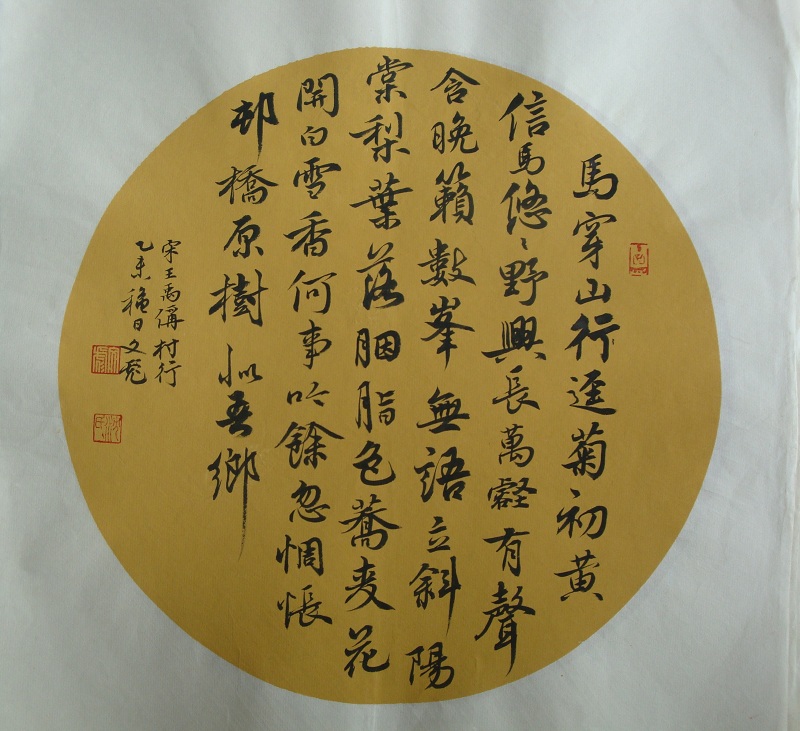 馬穿山行逕菊初黄
信馬悠〻野興長萬壑有聲
含晚籟數峯無語立斜陽
棠梨葉落胭脂色蕎麦花
開白雪香何事吟餘忽惆悵
邨橋原樹似吾鄉
宋王禹偁村行
乙未穐日文彪